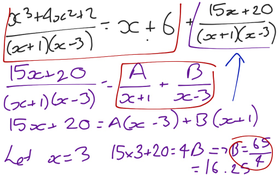 (x³+4x²+2)/((x+1)(x-3)) = x+6 + (15x+20)/((x+1)(x-3))
(15x+20)/((x+1)(x-3)) = A/(x+1) + B/(x-3)
15x+20 = A(x-3)+B(x+1)
Let x=3 15x3+20=4B => B=65/4
=16.25